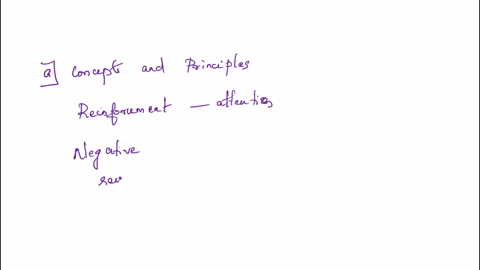 a] Concepts and Principles
Reinforcement — attention
Negative